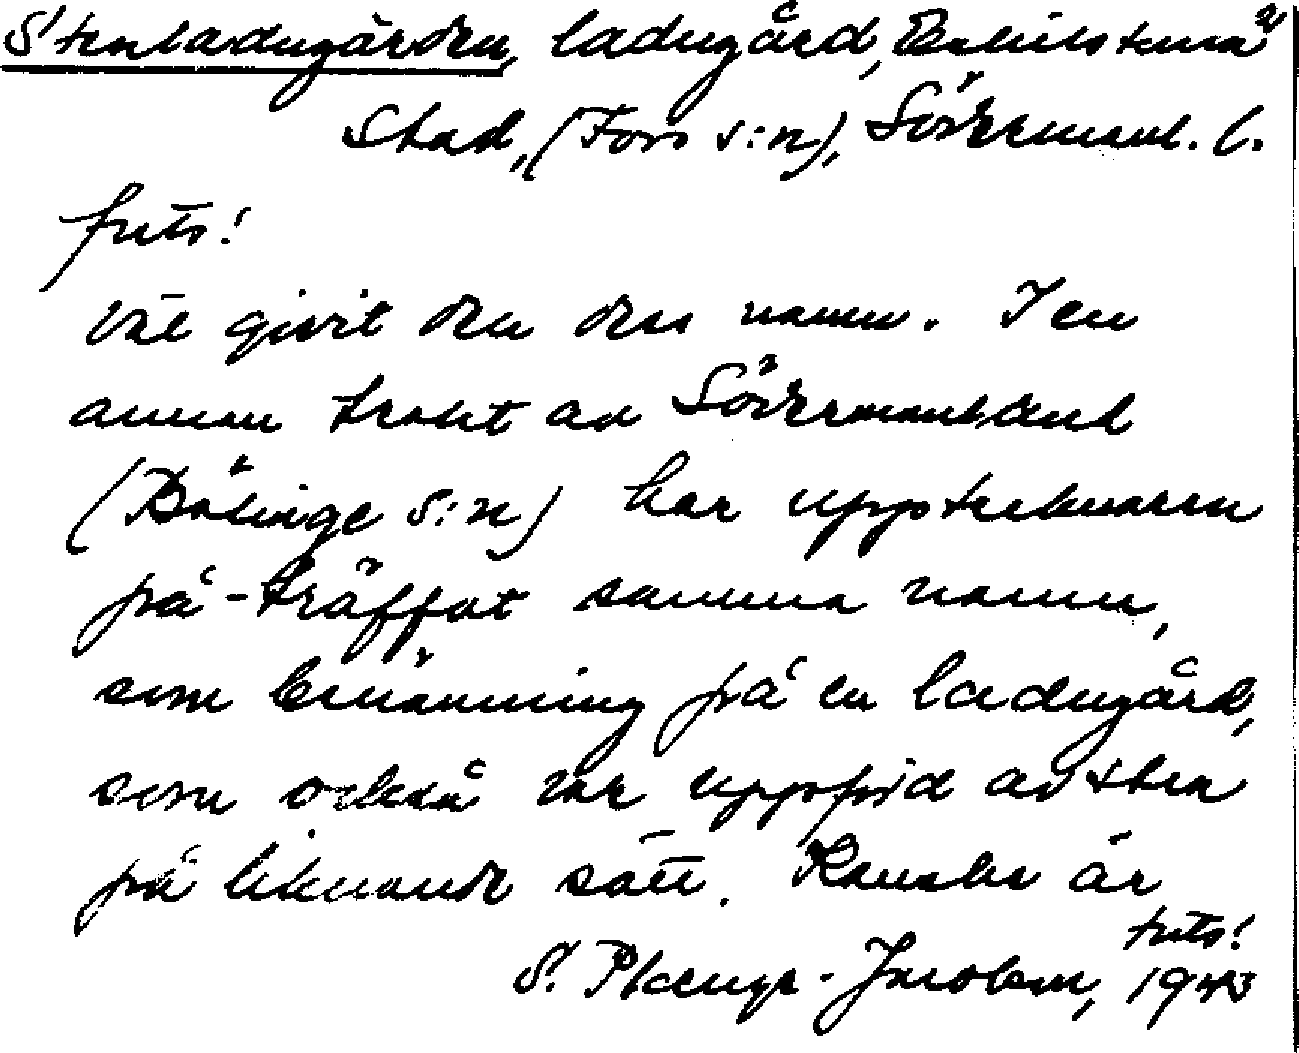 Stenladugården, ladugård, Eskilstuna
stad, (Fors s:n), Södermanl. l.
forts!
väl givit den dess namn. I en
annan trakt av Södermanland
(Bälinge s:n) har upptecknaren
på-träffat samma namn,
som benämning på en ladugård,
som också var uppförd av sten
på liknande sätt. Kanske är
forts!
S. Plænge-Jacobson, 1943